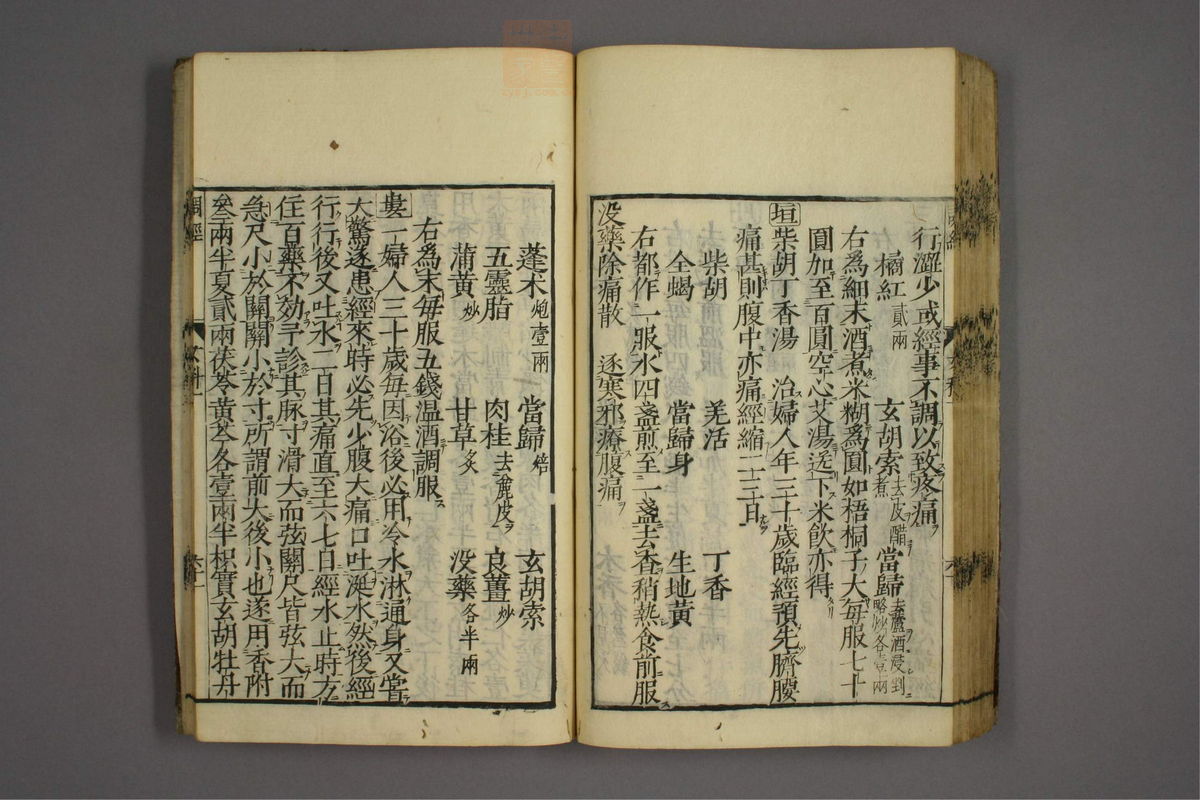 行澀少或經事不調以致疼痛
橘紅貳兩 玄胡索去皮醋煮 當歸去蘆酒浸剉略炒各壹兩
右為細末酒煮米糊爲圓如梧桐子大每服七十
圓加至百圓空心艾湯送下米飲亦得
垣柴胡丁香湯 治婦人年三十歲臨經預先臍腰
痛甚則腹中亦痛經縮二三日
柴胡 羌活 丁香
全蝎 當歸身 生地黃
右都作一服水四盞煎至一盞去香稍熱食前服
没藥除痛散 逐寒邪療腹痛
蓬朮炮壹兩 當歸焙 玄胡索
五靈脂 肉桂去麁皮 良薑炒
蒲黃炒 甘草炙 没藥各半兩
右爲末每服五錢温酒調服
婁一婦人三十歲每因浴後必用冷水淋通身又嘗
大驚遂患經來時必先少腹大痛口吐涎水然後經
行行後又吐水二日其痛直至六七日經水止時方
住百藥不効予診其脉寸滑大而弦關尺皆弦大而
急尺小於關關小於寸所謂前大後小也遂用香附
叁兩半夏貳兩茯苓黃芩各壹兩半枳實玄胡牡丹